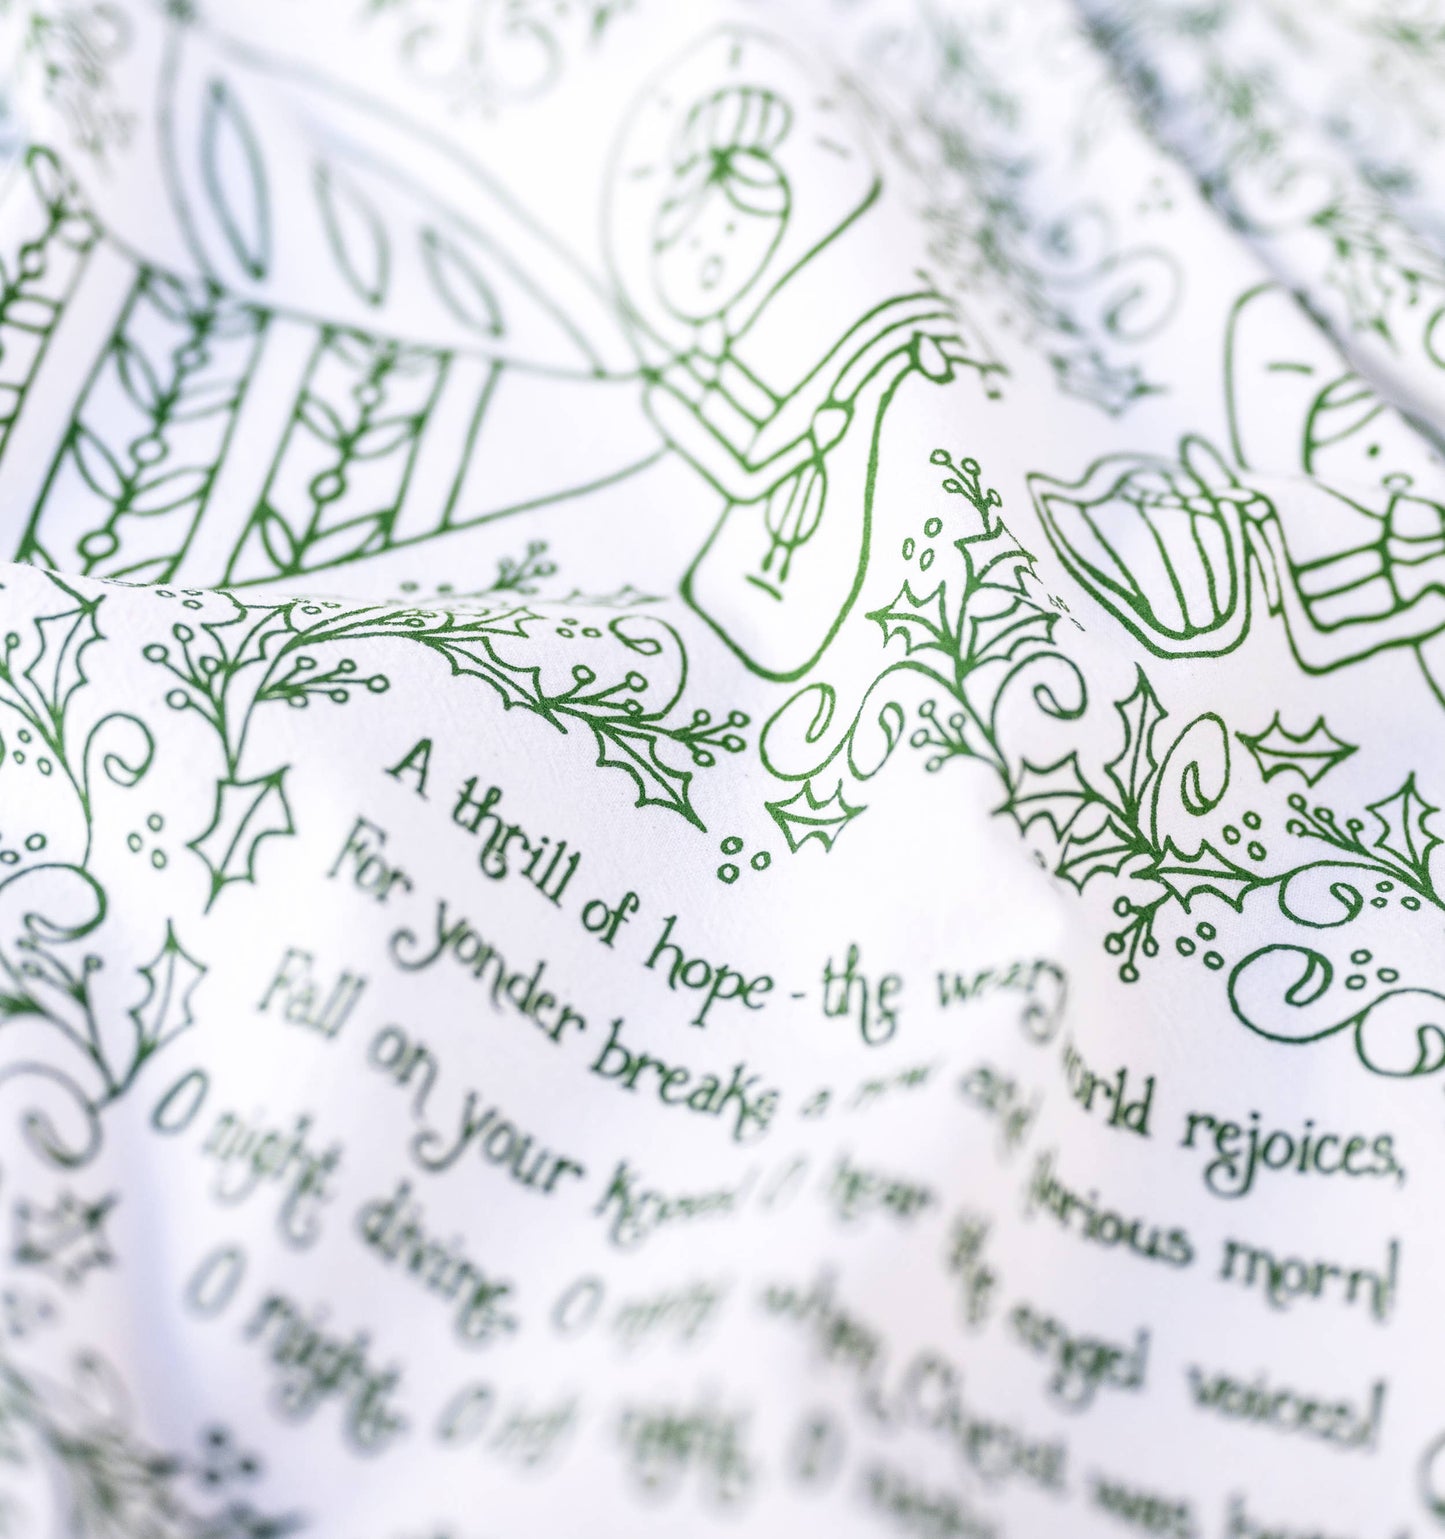 A thrill of hope - the weary world rejoices,
For yonder breaks a new and glorious morn!
Fall on your knees! O hear the angel voices!
O night divine, O night when Christ was
O night, O holy night, O